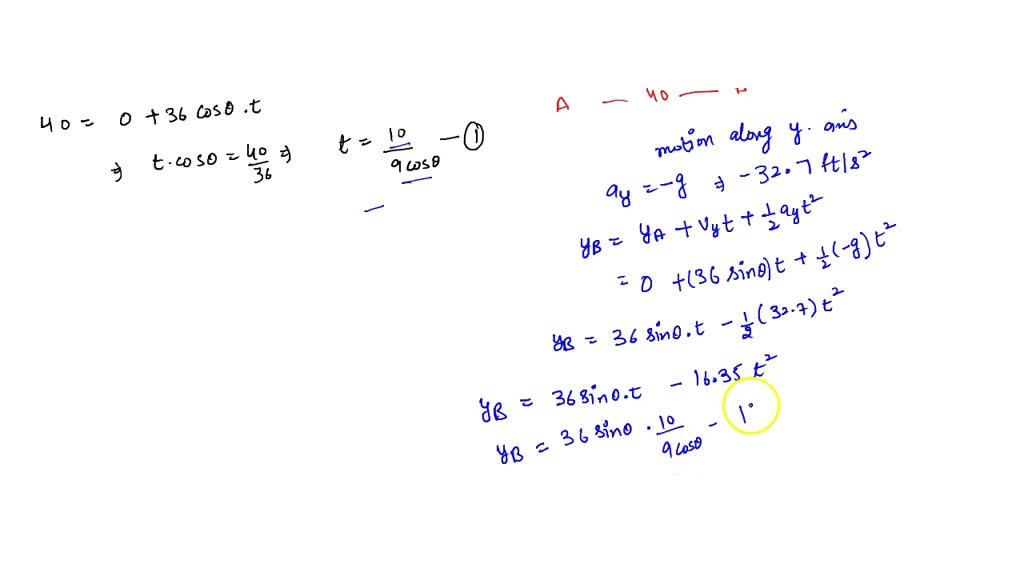 40 = 0 + 36 cosθ . t
⇒ t. cosθ = 40/36 ⇒ t = 10/9cosθ — ①
A — 40 —
motion along y. axis
ay = -g ⇒ -32.7 ft/s²
yB = yA + Vyt + 1/2 ayt²
= 0 + (36 sinθ)t + 1/2 (-g) t²
yB = 36 sinθ.t - 1/2 (32.7) t²
yB = 36 sinθ.t - 16.35 t²
yB = 36 sinθ . 10/9cosθ - 1